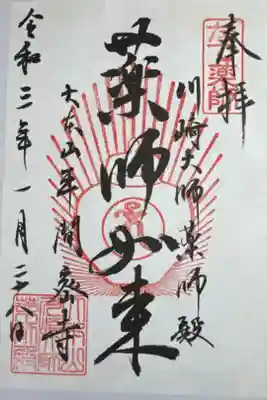 奉拝
川崎大師薬師殿
薬師如来
大本山平間寺
令和三年一月二十八日